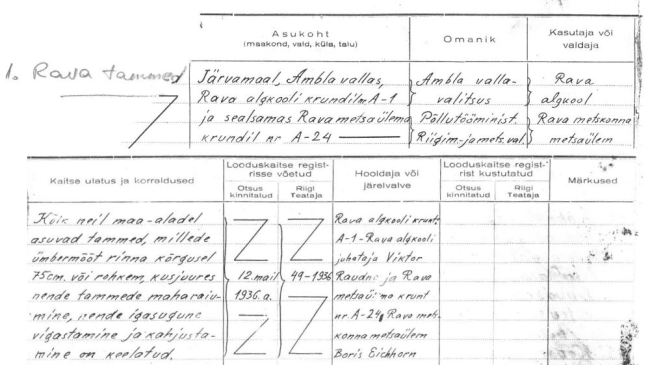 Asukoht
(maakond, vald, küla, talu)
Omanik
Kasutaja või
valdaja
1. Rava tammed
Järvamaal, Ambla vallas,
Rava algkooli krundil nr A-1
ja sealsamas Rava metsaülema
krundil nr A-24
Ambla valla-
valitsus
Põllutöömínist.
Riigim.-ja mets. val
Rava
algkool
Rava metskonna
metsaülem
Kaitse ulatus ja korraldused
Looduskaitse regist-
risse võetud
Otsus
kinnitatud
Riigi
Teataja
Hooldaja või
järelvalve
Looduskaitse regist-
rist kustutatud
Otsus
kinnitatud
Riigi
Teataja
Märkused
Kõik neil maa-aladel
asuvad tammed, millede
ümbermõõt rinna kõrgusel
75cm. või rohkem, kusjuures
nende tammede maharaiu-
mine, nende igasugune
vigastamine ja kahjusta-
mine on keelatud.
12. mail
1936. a.
49-1936
Rava algkooli krunt
A-1-Rava algkooli
juhataja Viktor
ja Rava
metsaülema krunt
nr A-24, Rava mets-
konna metsaülem
Boris Eichhorn